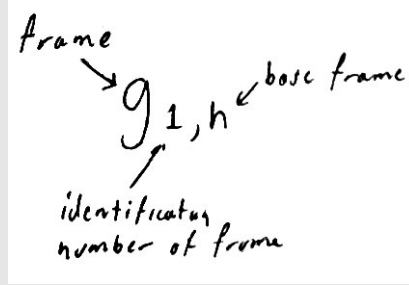 frame
base frame
g1,h
identification
number of frame